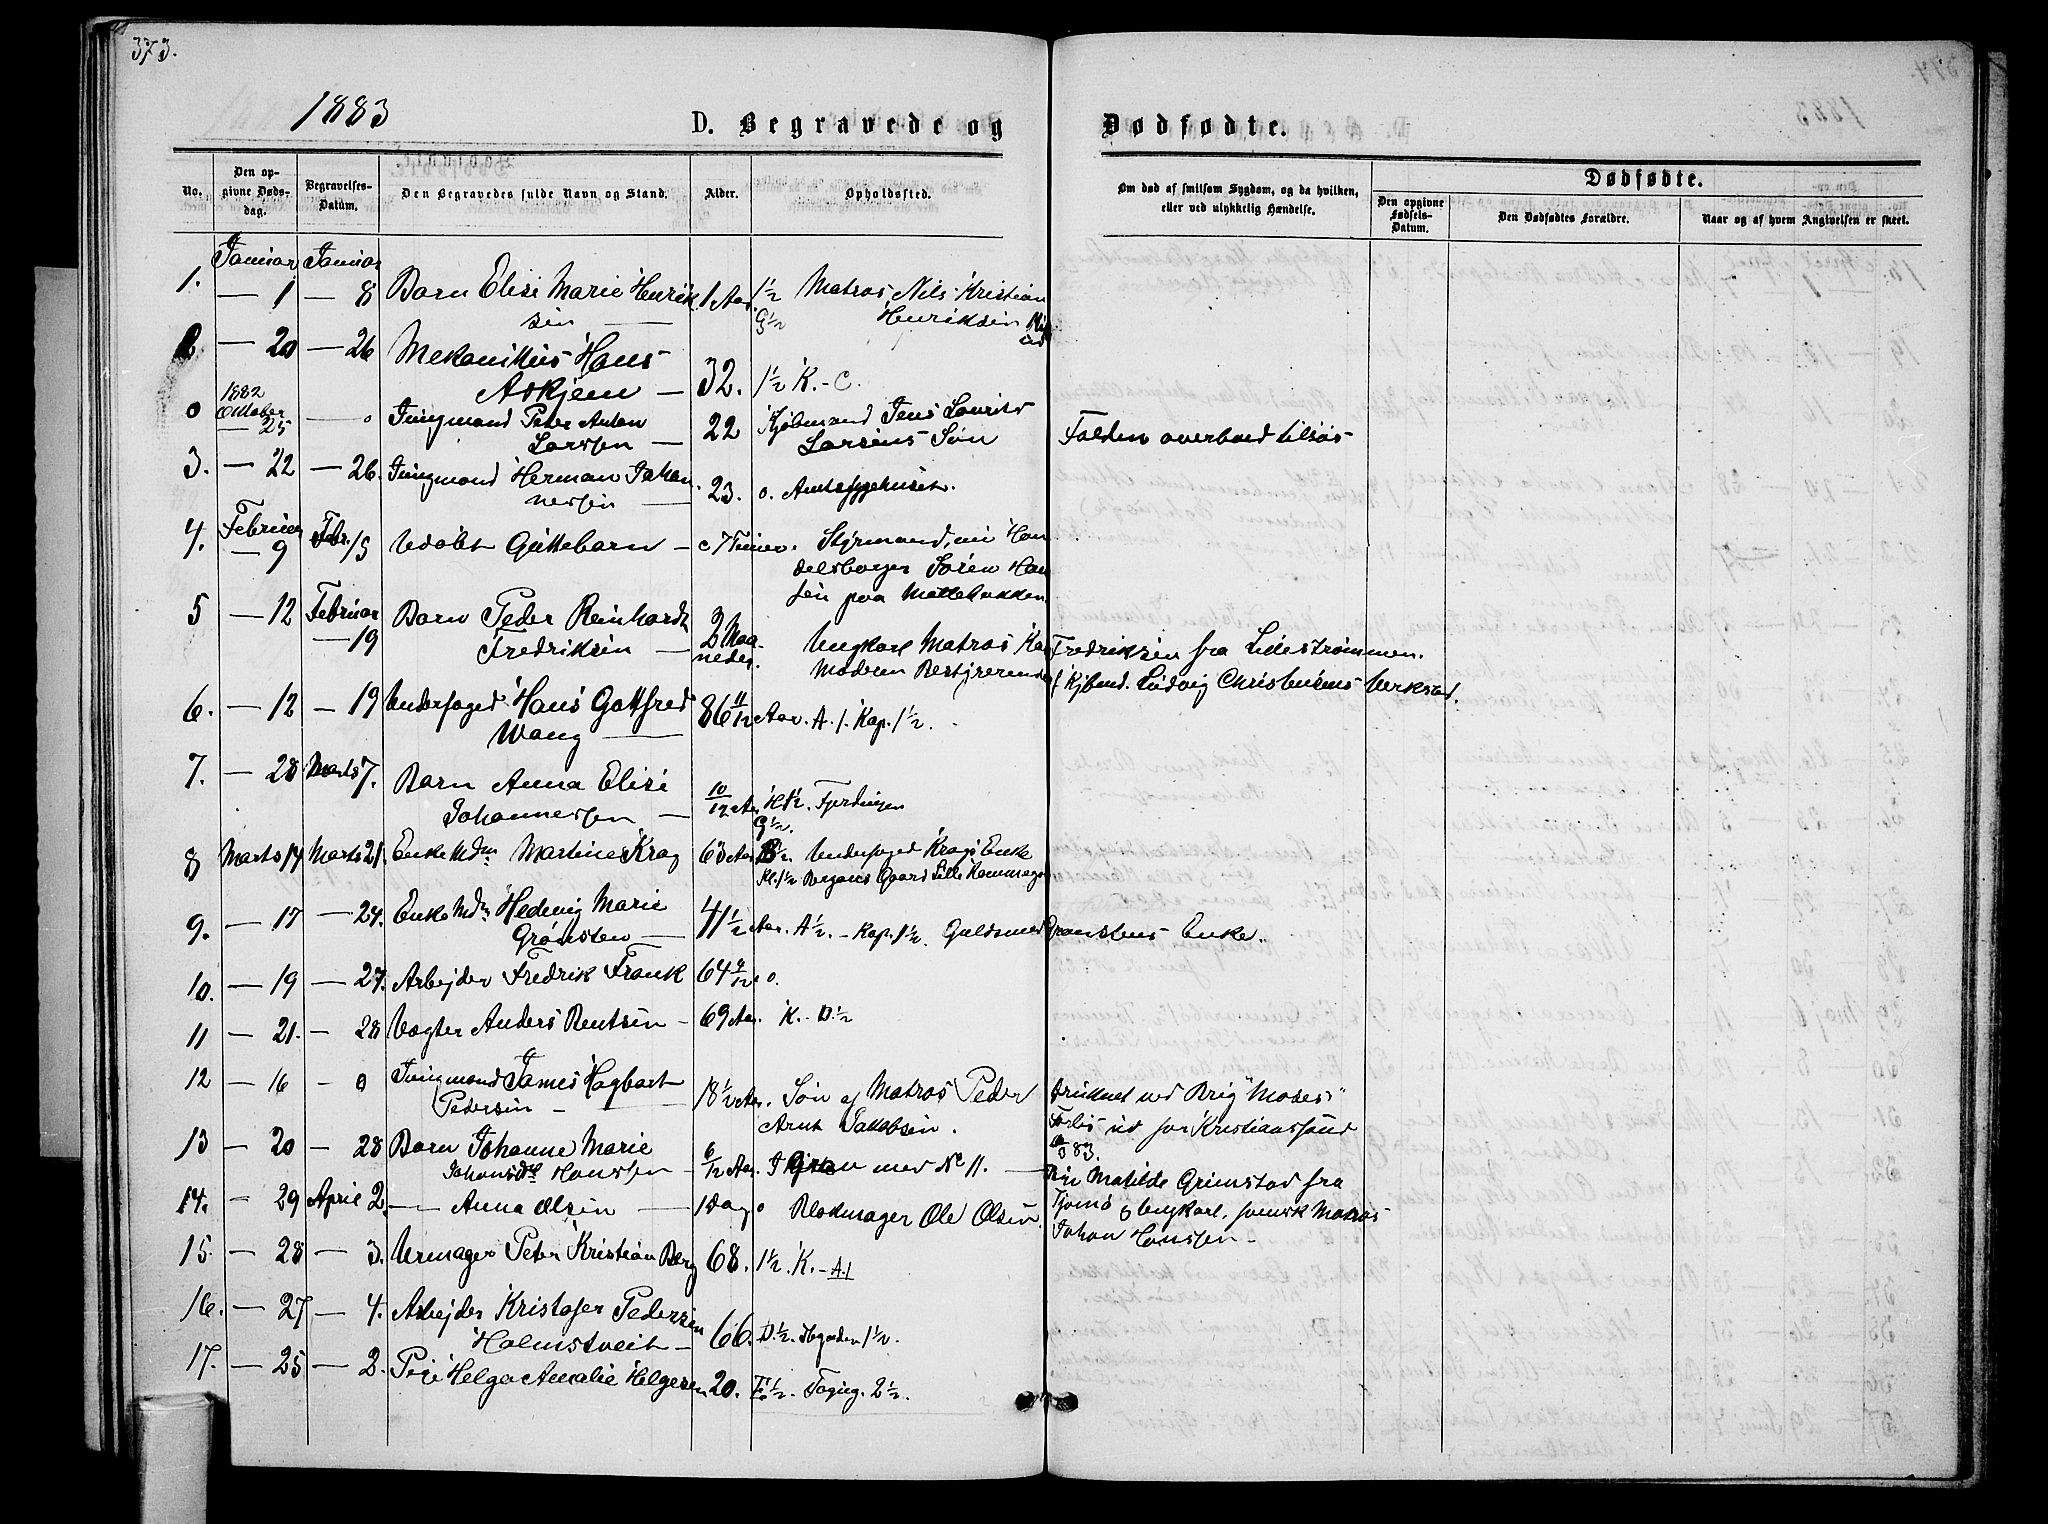 373.
1883
D. Begravede og Dødfødte.
No.
Den opgivne Dødsdag.
Begravelses-Datum.
Den Begravedes fulde Navn og Stand.
Alder.
Opholdssted.
Om død af smitsom Sygdom, og da hvilken, eller ved ulykkelig Hændelse.
Dødfødte.
Den opgivne Fødsels-Datum.
Den Dødfødtes Forældre.
Naar og af hvem Angivelsen er skeet.
Januar Januar
1. — 1 — 8 Barn Elise Marie Henrik 1 Aar 1½ Matros Nils Kristian
sen — G½ Henriksen
2 — 20 — 26 Mekanikus Hans
Askjem — 32. 1½ K. - C.
1882
Oktober
0 — 25 — 0 Jungmand Peter Anton 22 Kjøbmand Jens Laurits
Larssen — Larsens Søn Falden overbord tilsøs
3. — 22 — 26. Jungmand Herman Johan
nessen — 23. 0. Amtssygehuset.
Februar Febr.
4. — 9 15 Udøbt Guttebarn — 7 Timer. Styrmand, nu Han
delsborger Søren Han
sen paa Møllebakken
5 — 12 Februar — 19 Barn Peder Reinhardt
Fredriksen — 2 Maaneder. Ungkarl Matros Fredriksen fra Lilestrømmen.
Moderen Bestyrerinde f Kjbmd. Ludvig Christensens
6. — 12 — 19 Underfoged Hans Gotfred
Wang — 86 11/12 Aar. A.1. Kap. 1½.
7. — 28 Marts 7. Barn Anna Elise
Johannessen — 10/12 Aar H½. Fjerdingen
G½.
8 Marts 14 Marts 21. Enke Mdm Martine Krag 63 Aar ½. Underfoged Krags Enke
Kl. 1½ Gaard Lille
9. — 17 — 24. Enke Mdm Hedevig Marie
Grønsten — 41½ Aar. A½. - Kap. 1½. Guldsmed Grønstens Enke.
10. — 19 — 27. Arbejder Fredrik Frank 64 9/12 0.
11 — 21. — 28 Vægter Anders Bentsen — 69 Aar. K. - D.½
12 — 16 — 0 Jungmand James Hagbart
Pedersen — 18½ Aar. Søn af Matros Peder druknet ved Brig "Moses"
Arnt Jakobsen. Forlis ud for Kristianssund
83.
13 — 20 — 28 Barn Johanne Marie
Johansdtr Hanssen — 6/12 Aar. I Grav med No 11. —
14. — 29 April 2. — Anna Olsen — 1 Dag 0 Blokmager Ole Olsen.
Matilde Grimstad fra
Tjømø og Ungkarl, svensk Matros
Johan Hanssen —
15. — 28 — 3. Urmager Peter Kristian Berg 68. 1½. K. - A.1
16. — 27 — 4. Arbejder Kristofer Pedersen
Holmstveit — 66. D.½. 1½.
17. — 25 — 2. Pige Helga Amalie Helgesen 20. F½. 2½.